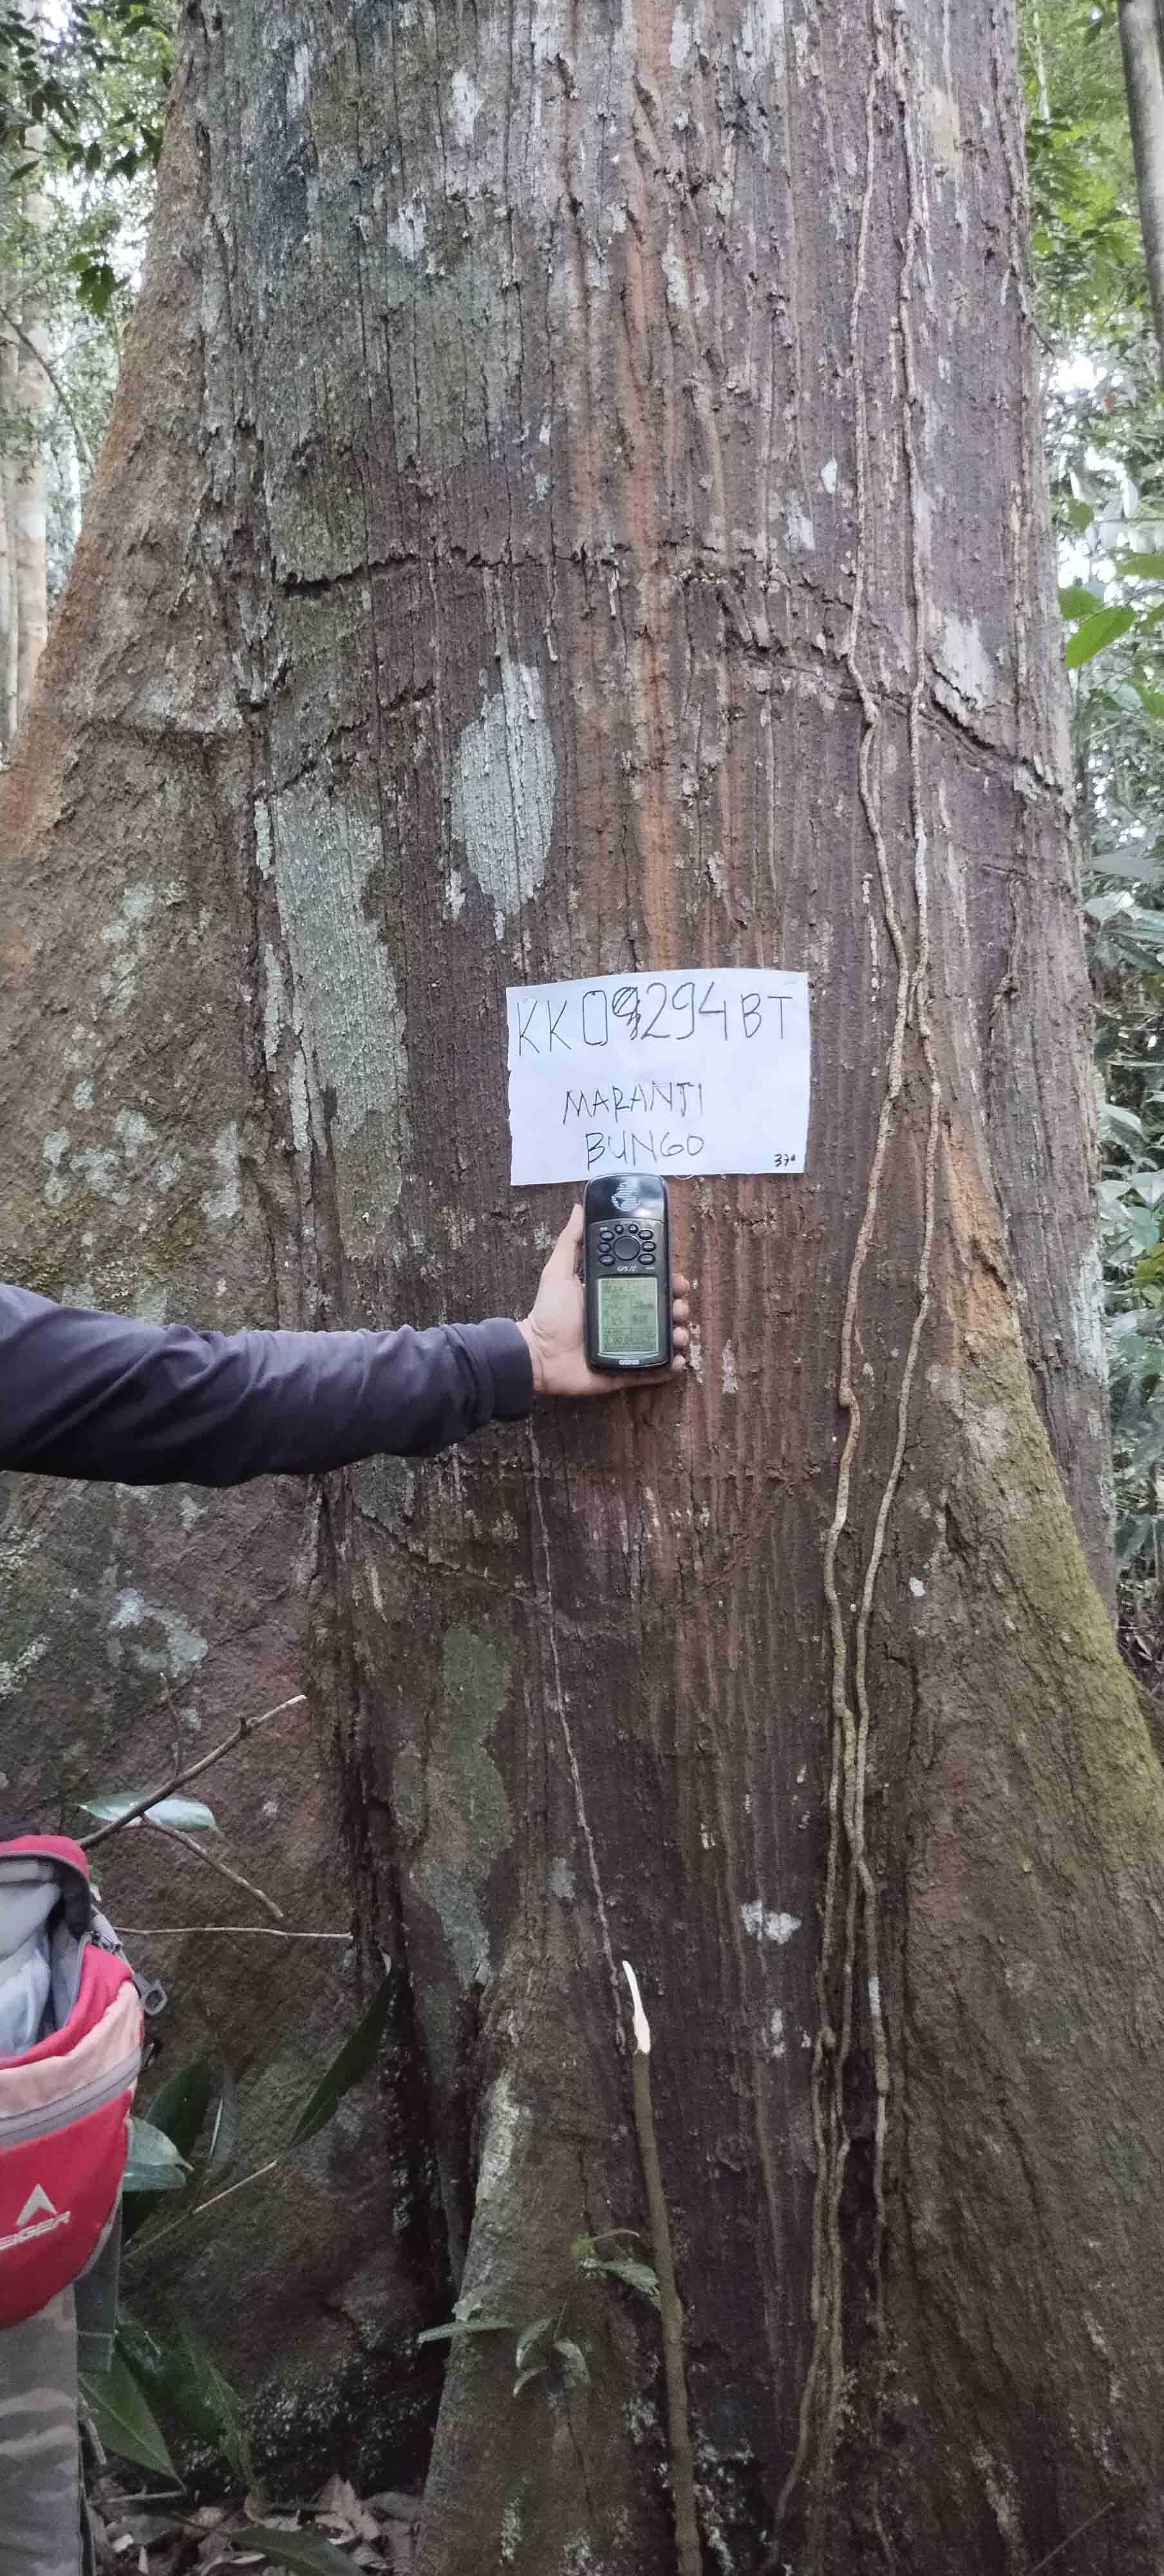 KK09294BT
MARANTI
BUNGO
370
GPS 72
GARMIN
EIGER